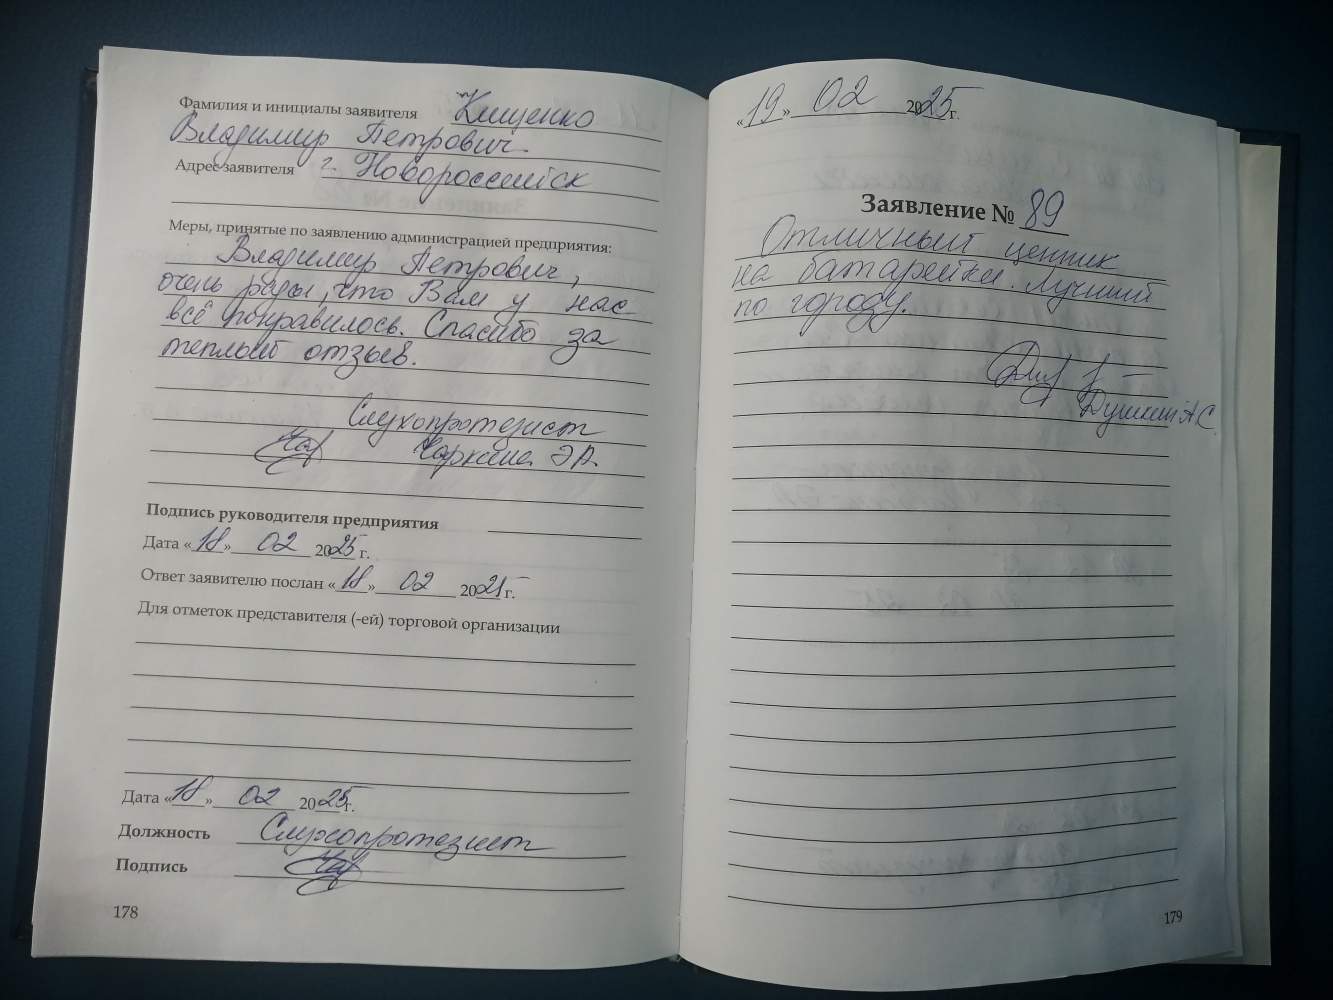 Фамилия и инициалы заявителя Клищенко
Владимир Петрович
Адрес заявителя г. Новороссийск
Меры, принятые по заявлению администрацией предприятия:
Владимир Петрович,
очень рады, что Вам у нас
всё понравилось. Спасибо за
теплый отзыв.
Слухопротезист
Э.А.
Подпись руководителя предприятия
Дата «18» 02 2025 г.
Ответ заявителю послан «18» 02 2025 г.
Для отметок представителя (-ей) торговой организации
Дата «18» 02 2025 г.
Должность Слухопротезист
Подпись
178
«19» 02 2025 г.
Заявление № 89
Отличный ценник
на батарейки. Лучший
по городу.
А С
179